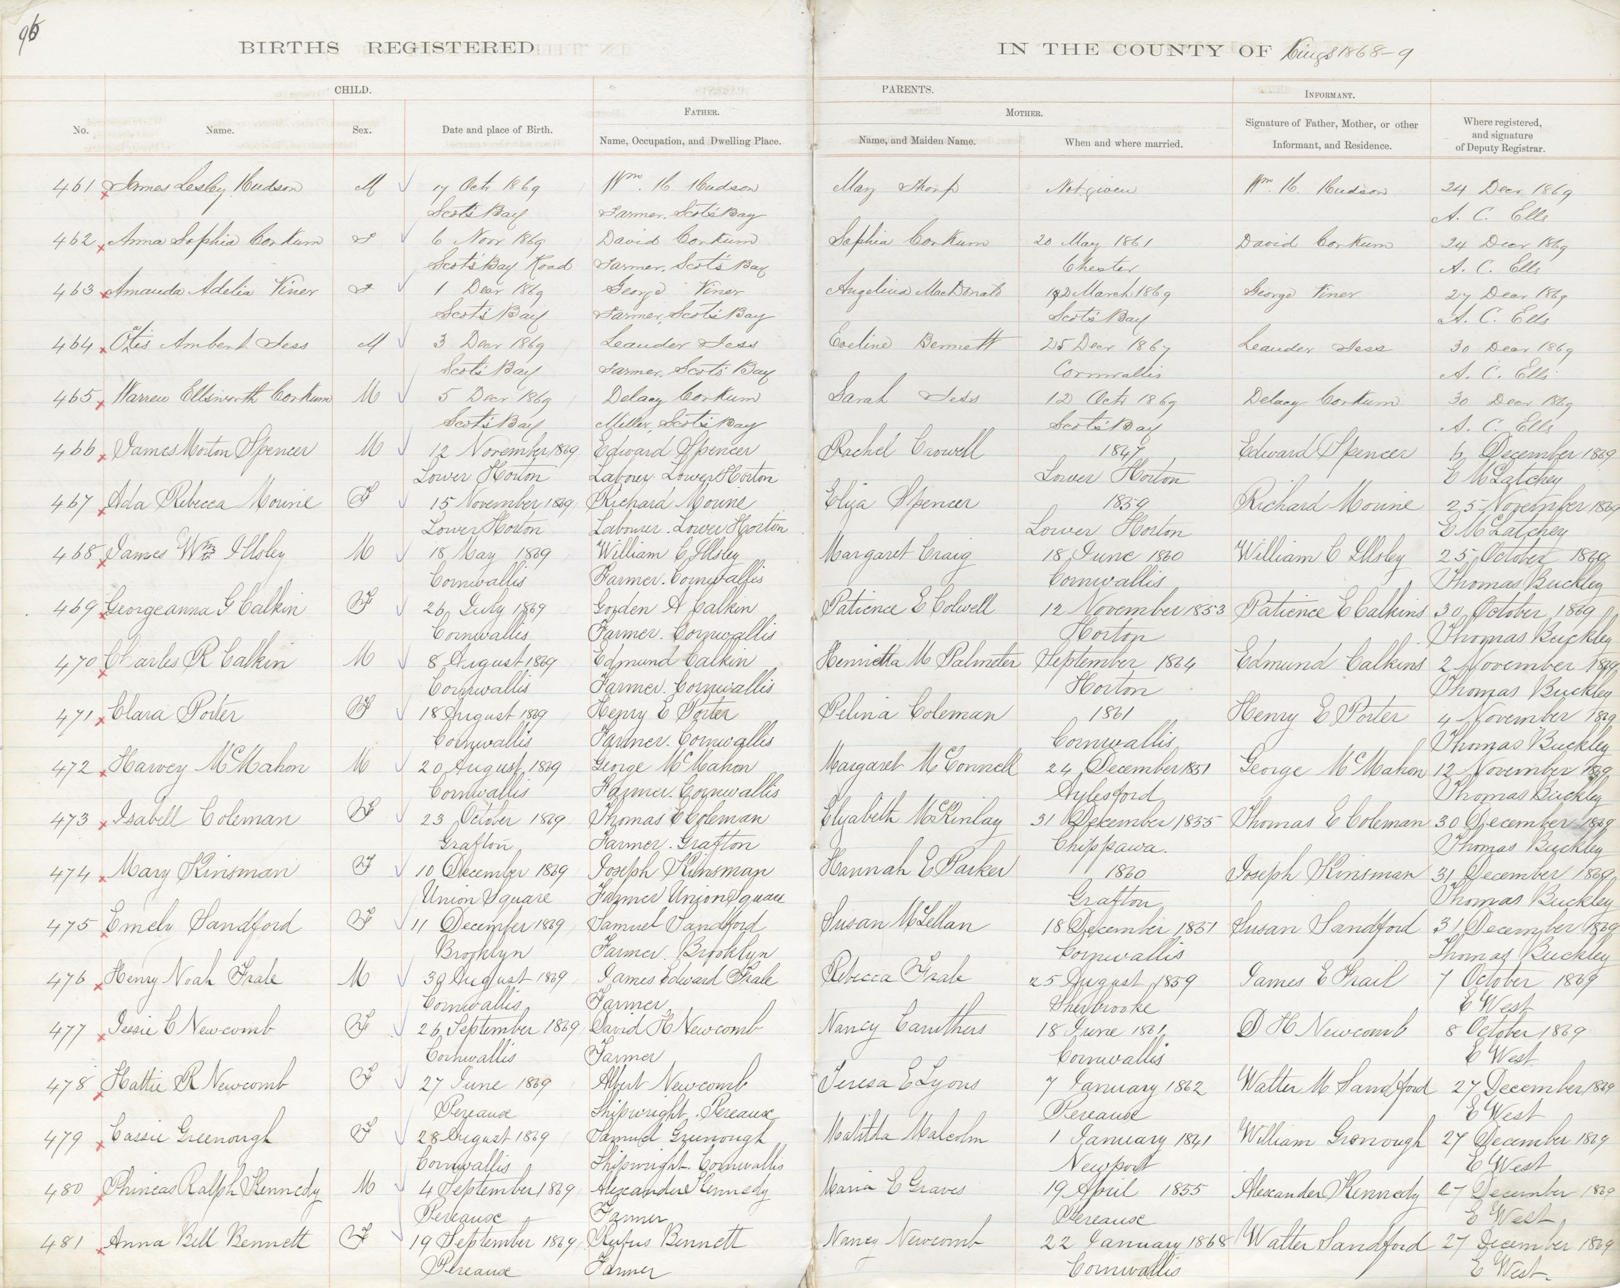 96
BIRTHS REGISTERED IN THE COUNTY OF Kings 1868-9
CHILD. PARENTS.
FATHER. MOTHER. INFORMANT.
No. Name. Sex. Date and place of Birth. Name, Occupation, and Dwelling Place. Name, and Maiden Name. When and where married. Signature of Father, Mother, or other Informant, and Residence. Where registered, and signature of Deputy Registrar.
461 James Lesley Hudson M 17 Oct 1869 Wm. H. Hudson May Thorp Not given Wm. H. Hudson 24 Decr 1869
Scots Bay Farmer, Scots Bay A. C. Ells
462 Anna Sophia Corkum F 6 Novr 1869 David Corkum Sophia Corkum 20 May 1861 David Corkum 24 Decr 1869
Scots Bay Road Farmer, Scots Bay Chester A. C. Ells
463 Amanda Adelia Viner F 1 Decr 1869 George Viner Angelina MacDonald March 1869 George Viner 27 Decr 1869
Scots Bay Farmer, Scots Bay Scots Bay A. C. Ells
464 Otis Ambert Jess M 3 Decr 1869 Leander Jess Eveline Bennett 25 Decr 1867 Leander Jess 30 Decr 1869
Scots Bay Farmer, Scots Bay Cornwallis A. C. Ells
465 Warren Ellsworth Corkum M 5 Decr 1869 Delacy Corkum Sarah Jess 12 Oct 1869 Delacy Corkum 30 Decr 1869
Scots Bay Miller, Scots Bay Scots Bay A. C. Ells
466 James Morton Spencer M 12 November 1869 Edward Spencer Rachel Crowell 1847 Edward Spencer 6 December 1869
Lower Horton Labour Lower Horton Lower Horton E McLatchey
467 Ada Rebecca Mounie F 15 November 1869 Richard Mounie Eliza Spencer 1859 Richard Mounie 25 November 1869
Lower Horton Labourer. Lower Horton Lower Horton E McLatchey
468 James Wm Illsley M 18 May 1869 William C Illsley Margaret Craig 18 June 1860 William C Illsley 25 October 1869
Cornwallis Farmer. Cornwallis Cornwallis Thomas Buckley
469 Georgeanna G Calkin F 26 July 1869 Gorden A Calkin Patience E Colwell 12 November 1853 Patience E Calkins 30 October 1869
Cornwallis Farmer. Cornwallis Horton Thomas Buckley
470 Charles R Calkin M 8 August 1869 Edmund Calkin Henrietta M Palmeter September 1864 Edmund Calkins 2 November 1869
Cornwallis Farmer. Cornwallis Horton Thomas Buckley
471 Clara Porter F 18 August 1869 Henry E Porter Pelina Coleman 1861 Henry E Porter 4 November 1869
Cornwallis Farmer. Cornwallis Cornwallis Thomas Buckley
472 Harvey McMahon M 20 August 1869 George McMahon Margaret McConnell 24 December 1851 George McMahon 12 November 1869
Cornwallis Farmer. Cornwallis Aylesford Thomas Buckley
473 Isabell Coleman F 23 October 1869 Thomas E Coleman Elizabeth McKinlay 31 December 1855 Thomas E Coleman 30 December 1869
Grafton Farmer. Grafton Chippawa. Thomas Buckley
474 Mary Kinsman F 10 December 1869 Joseph Kinsman Hannah E Parker 1860 Joseph Kinsman 31 December 1869
Union Square Farmer Union Square Grafton Thomas Buckley
475 Emely Sandford F 11 December 1869 Samuel Sandford Susan McLellan 18 December 1851 Susan Sandford 31 December 1869
Brooklyn Farmer. Brooklyn Cornwallis Thomas Buckley
476 Henry Noah Frale M 30 August 1869 James Edward Frale Rebecca Frale 25 August 1859 James E Frail 7 October 1869
Cornwallis Farmer Sherbrooke E West
477 Jessie C Newcomb F 26 September 1869 David H Newcomb Nancy Caruthers 18 June 1861 D H Newcomb 8 October 1869
Cornwallis Farmer Cornwallis E West
478 Hattie R Newcomb F 27 June 1869 Albert Newcomb Teresa E Lyons 7 January 1862 Walter M Sandford 27 December 1869
Pereaux Shipwright. Pereaux Pereaux E West
479 Cassie Greenough F 28 August 1869 Samuel Greenough Matilda Malcolm 1 January 1841 William Greenough 27 December 1869
Cornwallis Shipwright. Cornwallis Newport E West
480 Phineas Ralph Kennedy M 4 September 1869 Alexander Kennedy Maria E Graves 19 April 1855 Alexander Kennedy 27 December 1869
Pereaux Farmer Pereaux E West
481 Anna Bell Bennett F 19 September 1869 Rufus Bennett Nancy Newcomb 22 January 1868 Walter Sandford 27 December 1869
Pereaux Farmer Cornwallis E West.